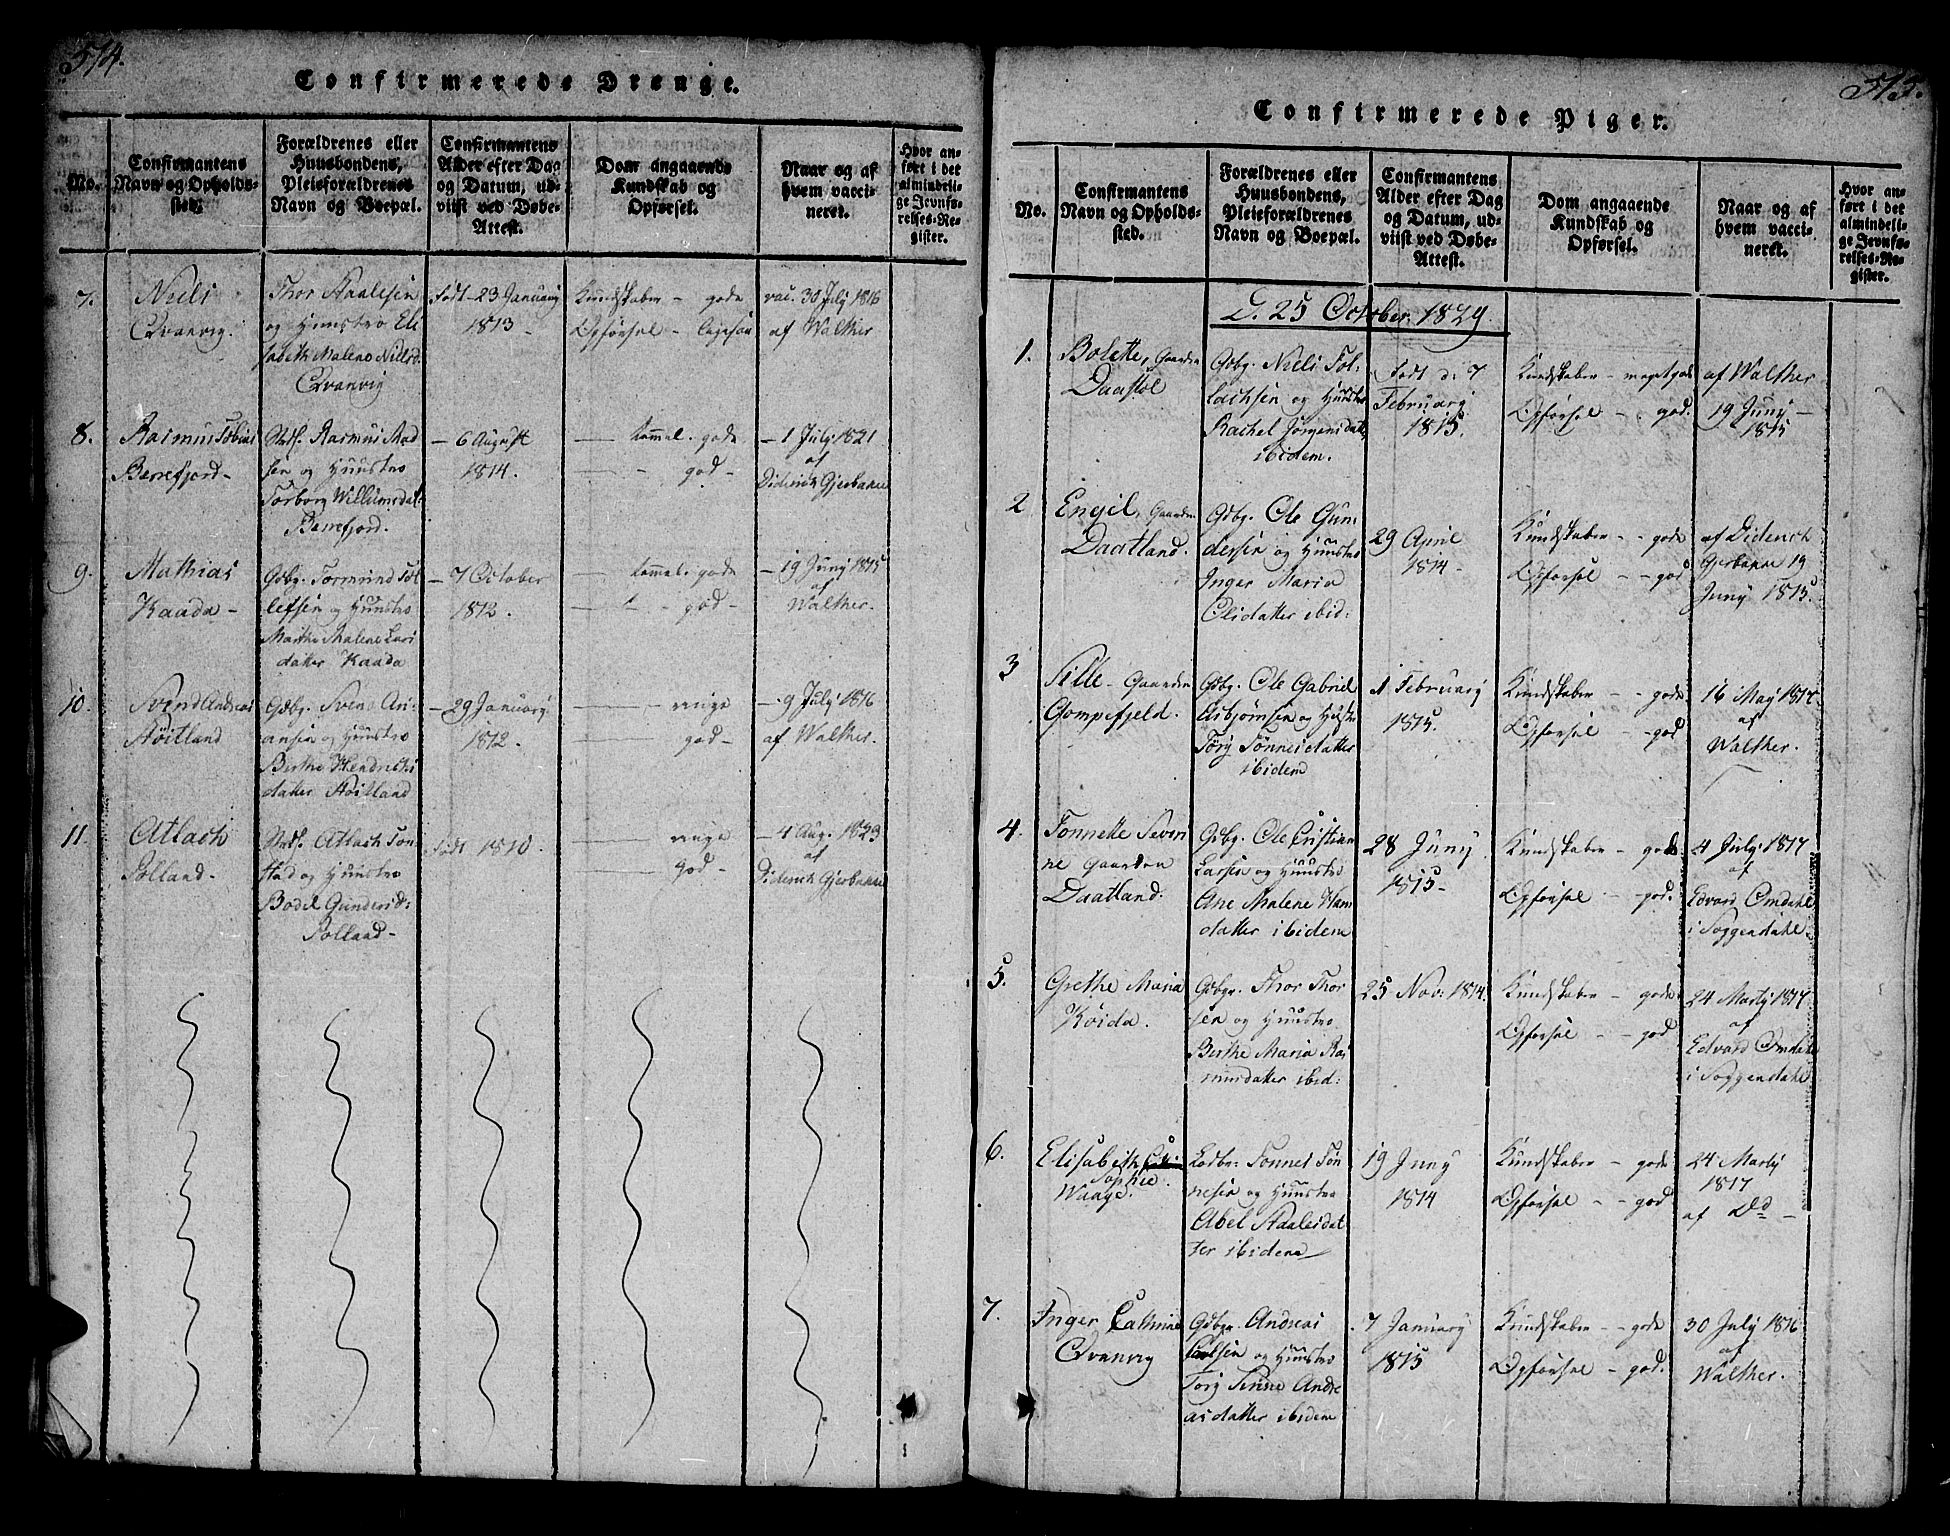 574.
Confirmerede Drenge.
No.
Confirmantens
Navn og Opholds-
sted.
Forældrenes eller
Huusbondens,
Pleieforældrenes
Navn og Boepæl.
Confirmantens
Alder efter Dag
og Datum, ud-
viist ved Døbe-
Attest.
Dom angaaende
Kundskab og
Opførsel.
Naar og af
hvem vacci-
neret.
Hvor an-
ført i det
almindeli-
ge Jevnfø-
relses-Re-
gister.
7.
Niels
Qvanvig.
Thor Staalesen
og Huustro Eli
sabeth Malene Nielsd.
Qvanvig
Født 23 Januarij
1813.
Kundskaber – gode
Opførsel –
vac. 30 July 1816
af Walther
8.
Rasmus Tobias
Berrefjord –
Rasmus Mad
sen og Huustro
Torborg Willumsdat.
Berrefjord.
– 6 August
1814.
temmel. gode
god –
– 1 July 1821
af
Diderich Gjerbakne
9.
Mathias
Kaada –
Gdbg. Tormund Tol
lefsen og Huustro
Marthe Malene Lars
datter Kaada
– 7 October
1812.
temmel. gode
god –
– 19 Juny 1815
af
Walther.
10.
Svend Andreas
Høitland
Gdbg. Svend An-
ansen og Huustro
Berthe Hendrichs
datter Høitland
– 29 Januarij
1812.
ringe
god –
– 9 July 1816
af Walther.
11.
Atlach
Solland –
Atlach Ton
stad og Huustro
Bodel Gundersd:
Solland –
Født 1810.
ringe
god –
– 4 Aug. 1823
af
Diderich Gjerbakne
575.
Confirmerede Piger.
No.
Confirmantens
Navn og Opholds-
sted.
Forældrenes eller
Huusbondens,
Pleieforældrenes
Navn og Boepæl.
Confirmantens
Alder efter Dag
og Datum, ud-
viist ved Døbe-
Attest.
Dom angaaende
Kundskab og
Opførsel.
Naar og af
hvem vacci-
neret.
Hvor an-
ført i det
almindeli-
ge Jevnfø-
relses-Re-
gister.
D. 25 October. 1829.
1.
Bolette, Gaarden
Daastøl
Gdbg. Niels Tol-
lachsen og Huustro
Rachel Jørgensdat.
ibidem.
Født d: 7
Februarij
1815.
Kundskaber – meget gode
Opførsel – god.
af Walther
19 Juny –
1815
2
Engel, Gaarden
Daatland.
Gdbg. Ole Gun-
dersen og Huustro
Inger Maria
Olsdatter ibid:
29 April
1814 –
Kundskaber – gode
Opførsel – god
af Diderich
Gjerbakne 19
Juny 1815.
3
Sille – Gaarden
Gompefjeld.
Gdbg. Ole Gabriel
Esbjørnsen og Hustro
Tørg Tønnesdatter
ibidem
1 Februarij
1815.
Kundskaber – gode
Opførsel – god
16 May 1817
af
Walther.
4.
Tonnette Severi
ne Gaarden
Daatland.
Gdbg. Ole Cristian
Larsen og Huustro
Ane Malene Han
datter ibidem
28 Juny
1815 –
Kundskaber – gode
Opførsel – god.
4 July 1817
af
Edvard Omdahl
i Soggendahl.
5.
Grethe Maria
Køida.
Gdbgr. Thor Thor
sen og Huustro
Berthe Maria Ras
musdatter ibid:
25 Nov: 1814.
Kundskaber – gode
Opførsel – god
24 Martj 1817
af
Edvard Omdahl
i Soggendahl
6.
Elisabeth
Sophie.
Waage.
Tonnes Tøn
nesen og Huustro
Abel Staalesdat
ter ibidem
19 Juny
1814
Kundskaber – gode
Opførsel – god
24 Martj
1817
af Do –
7.
Inger Cathrine
Qvanvig
Gdbgr. Andreas
Carlsen og Huustro
Torg Serine Andre
asdatter ibidem
7 Januarij
1815
Kundskaber – gode
Opførsel – god.
30 July 1816
af
Walther.